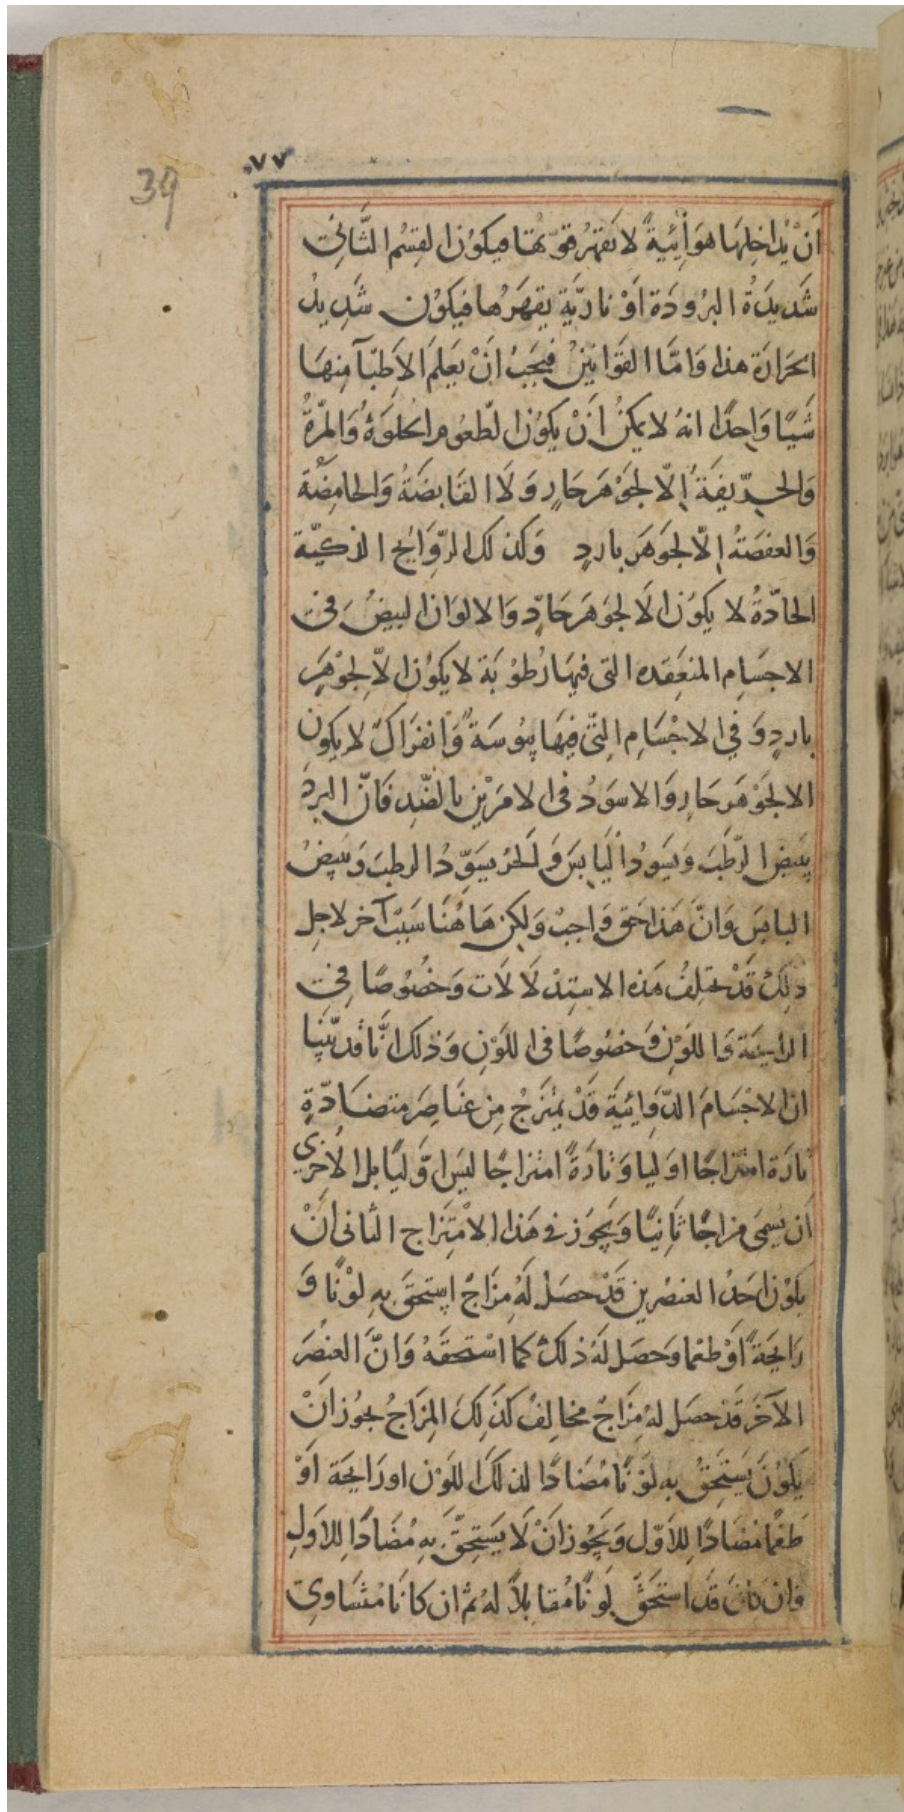 ٧٧
39
اَنْ يُداخِلهَا هوَائِيةً لا تَقهَرُ قوّتها فيكوُن القِسْم الثَّاني
شَديدَةُ البرُودَة اَوْ نارِيَّة يقهَرُها فيكوُن شَدِيدُ
الحَرارَة هذا وَامَّا القَوَانِينُ فيجَبُ اَنْ يَعلمَ الاَطِبّآ مِنهَا
شَيًا وَاحِدًا انهُ لا يمكنُ اَنْ يكوُن الطعُوم الحلوَةُ وَالمرّةُ
وَالحِرّيفَةُ اِلّا لجوْهَر حَارٍ وَلَا القَابضَةُ وَالحامِضَةُ
وَالعفصَةُ اِلّا لجوَهَر باردٍ وَكذلك الرّوَائح الذكيّة
الحَادّةُ لا يكوُن الَا لجوَهَر حَارّ وَالالوَان البيضُ فى
الاجسَام المنعَقده التى فيهَا رُطوُبَة لا يكوُن الاّ لِجوْهَرٍ
باردٍ وَفي الاجْسَام التّى فيهَا يبُوسَةٌ وَانفرَاكٌ لا يكون
الا لجَوْهَر حَارٍ وَالاسوَدُ فى الامرَيْن بالضّد فَانّ البردَ
يبَيض الرّطبَ وَيسَودُ اليَابسَ وَالحَر يسَوّدُ الرطبَ وَيبَيضُ
اليابسَ وَانَّ هَذا حَق وَاجبْ وَلكِن هَاهُنا سَببْ آخر لاجِل
ذلِكَ قَدْ تختلِفُ هَذه الاستِدْلَالَات وَخصُوُصًا فى
الرايحَة وَاللوَنِ وَخصُوصًا فى اللوَنِ وَذلك انَّا قد بيّنا
ان الاجْسَامَ الدّوَائيَةَ قَدْ يمتزَجُ مِن عنَاصِرَ متضَادّةٍ
تارَة امتزاجًا اوليا وَتارَةً امتزاجًا ليسَ اوّليًا بل الاُحرَى
اَن يسمَى مزاجًا ثَانيًا وَيجوَز فى هَذا الامْتِزَاج الثانى اَنْ
يكوُن احَدُ العنصُرين قَدْ حصَل لَهُ مِزَاجٌ اِستحقَ بهِ لوْنًا وَ
رَايحَةً اَوْ طعمًا وَحصَل لَهُ ذلكَ كما اسْتحَقَهُ وَانَّ العنصُرَ
الآخَرَ قَدْ حصَل لهُ مِزَاجٌ مخالِفٌ كذَلِكَ المِزَاجُ يجوُز اَنْ
يَكُوُنَ يَستحِقُ به لوْنًا مُضَادًا لذلكَ اللوْن او رَايحَة اَوْ
طَعْمًا مُضَادًا لِلاَوّل وَيجوُز اَنْ لَا يَستحِقَّ بهِ مُضَادًا لِلاَولِ
وَان كانَ قَد استَحَقَّ لوْنًا مُقابلاً لهُ ثم ان كانَا مُتسَاوى